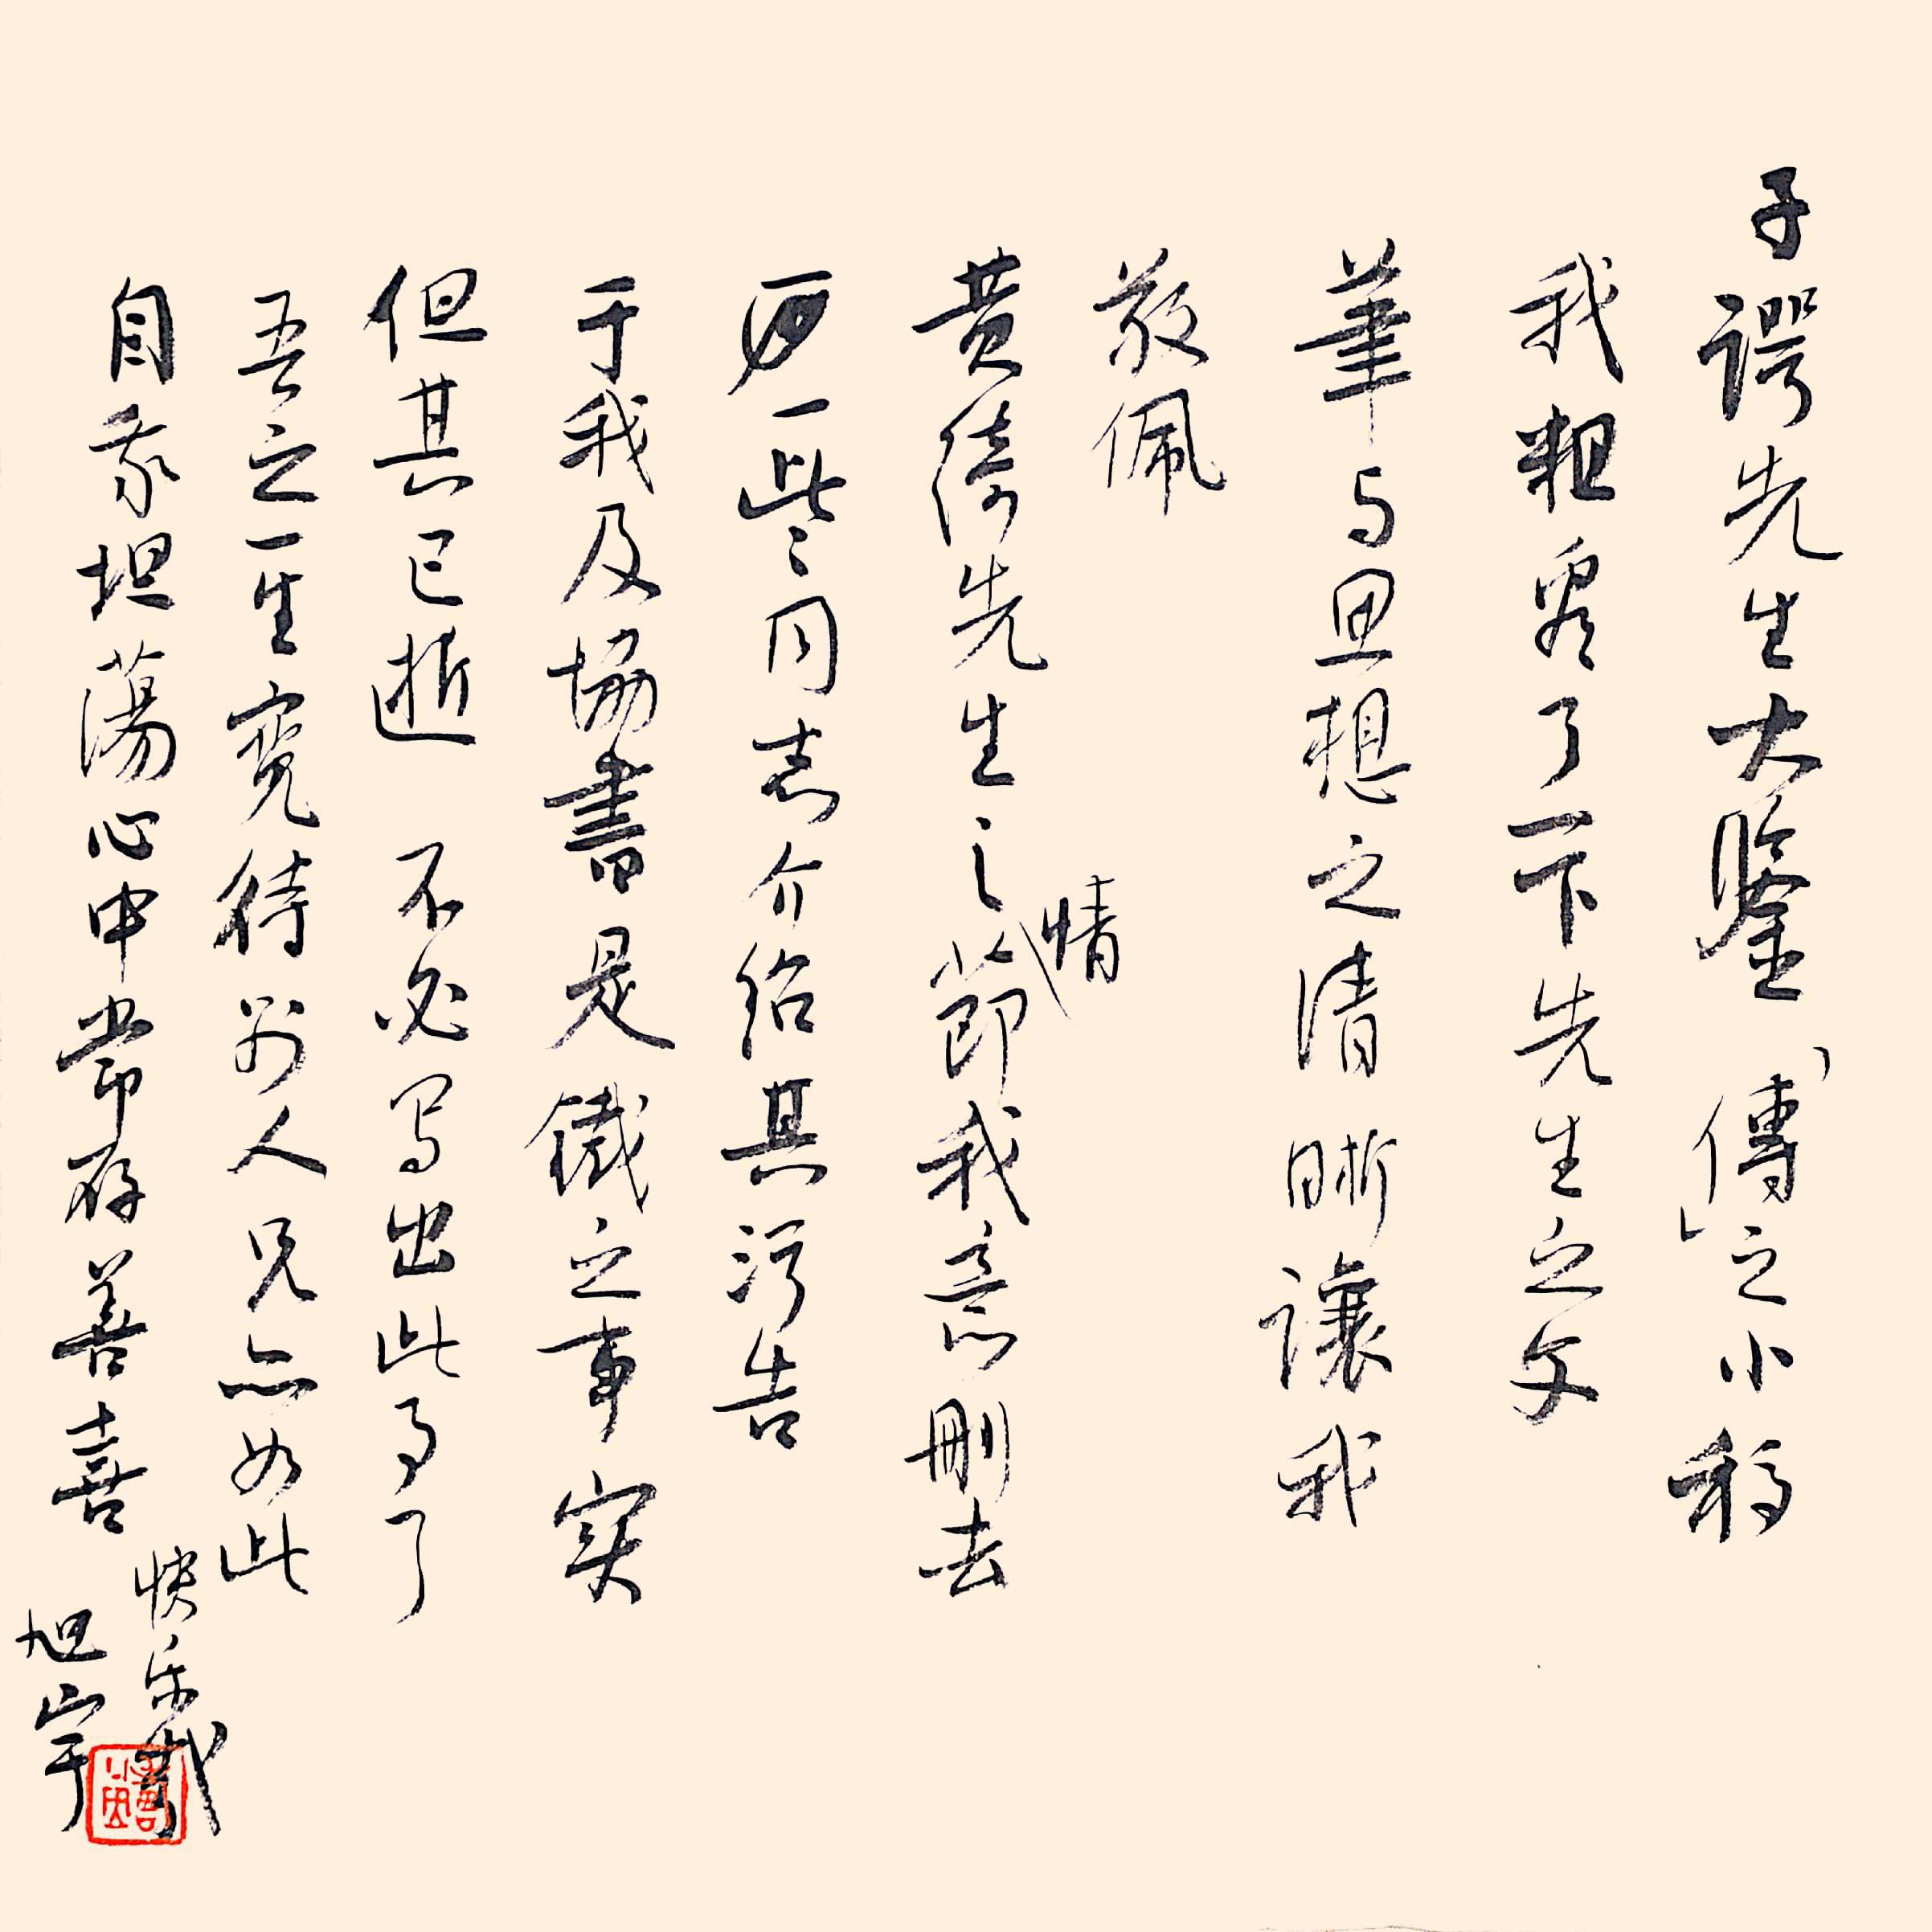 子谔先生大鉴「傳」之小稿
我粗略了一下先生之文
筆与思想之清晰讓我
敬佩
黄绮先生之情節我意删去
一些同志介绍其污告
于我及協書是鐵之事実
但其已逝 不必写出此事了
吾之一生寛待别人兄亦如此
自家坦蕩心中常存善喜
快乐哉
旭宇